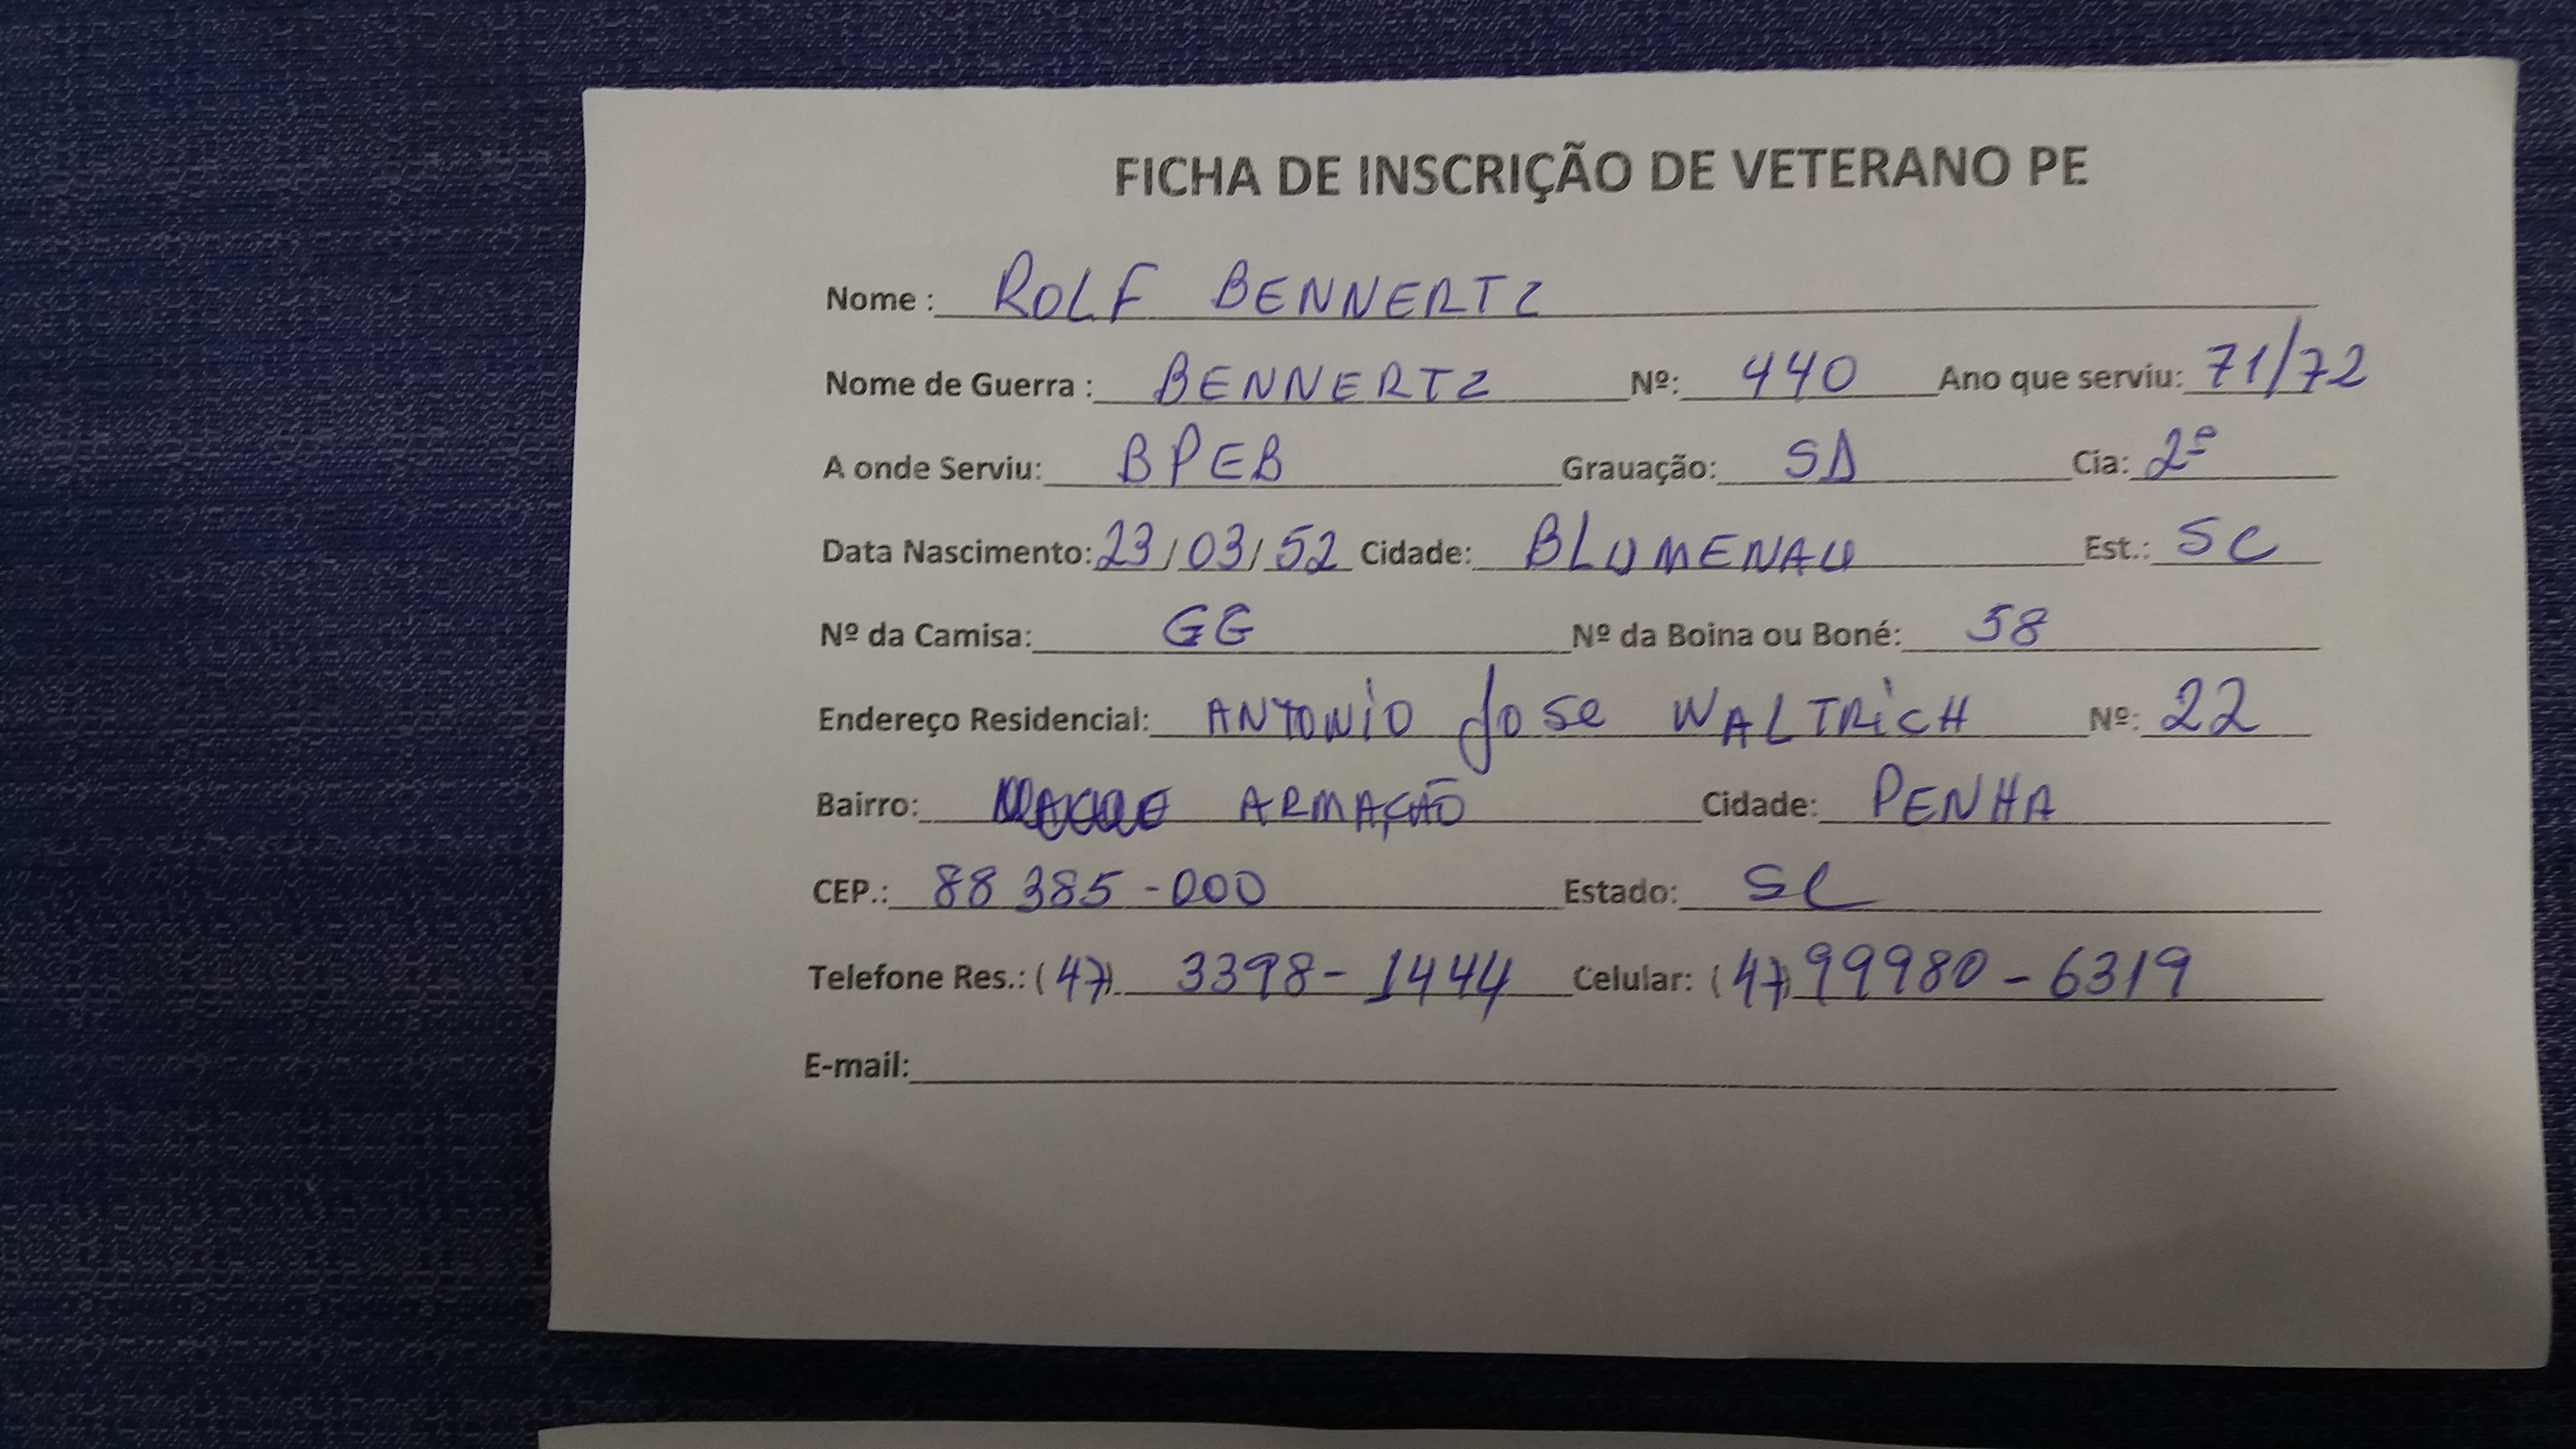 FICHA DE INSCRIÇÃO DE VETERANO PE
Nome : ROLF BENNERTZ
Nome de Guerra : BENNERTZ Nº: 440 Ano que serviu: 71/72
A onde Serviu: BPEB Grauação: SD Cia: 2ª
Data Nascimento: 23/03/52 Cidade: BLUMENAU Est.: SC
Nº da Camisa: GG Nº da Boina ou Boné: 58
Endereço Residencial: ANTONIO JOSE WALTRICH Nº: 22
Bairro: ARMAÇÃO Cidade: PENHA
CEP.: 88 385-000 Estado: SC
Telefone Res.: (47) 3398-1444 Celular: (47) 99980-6319
E-mail: